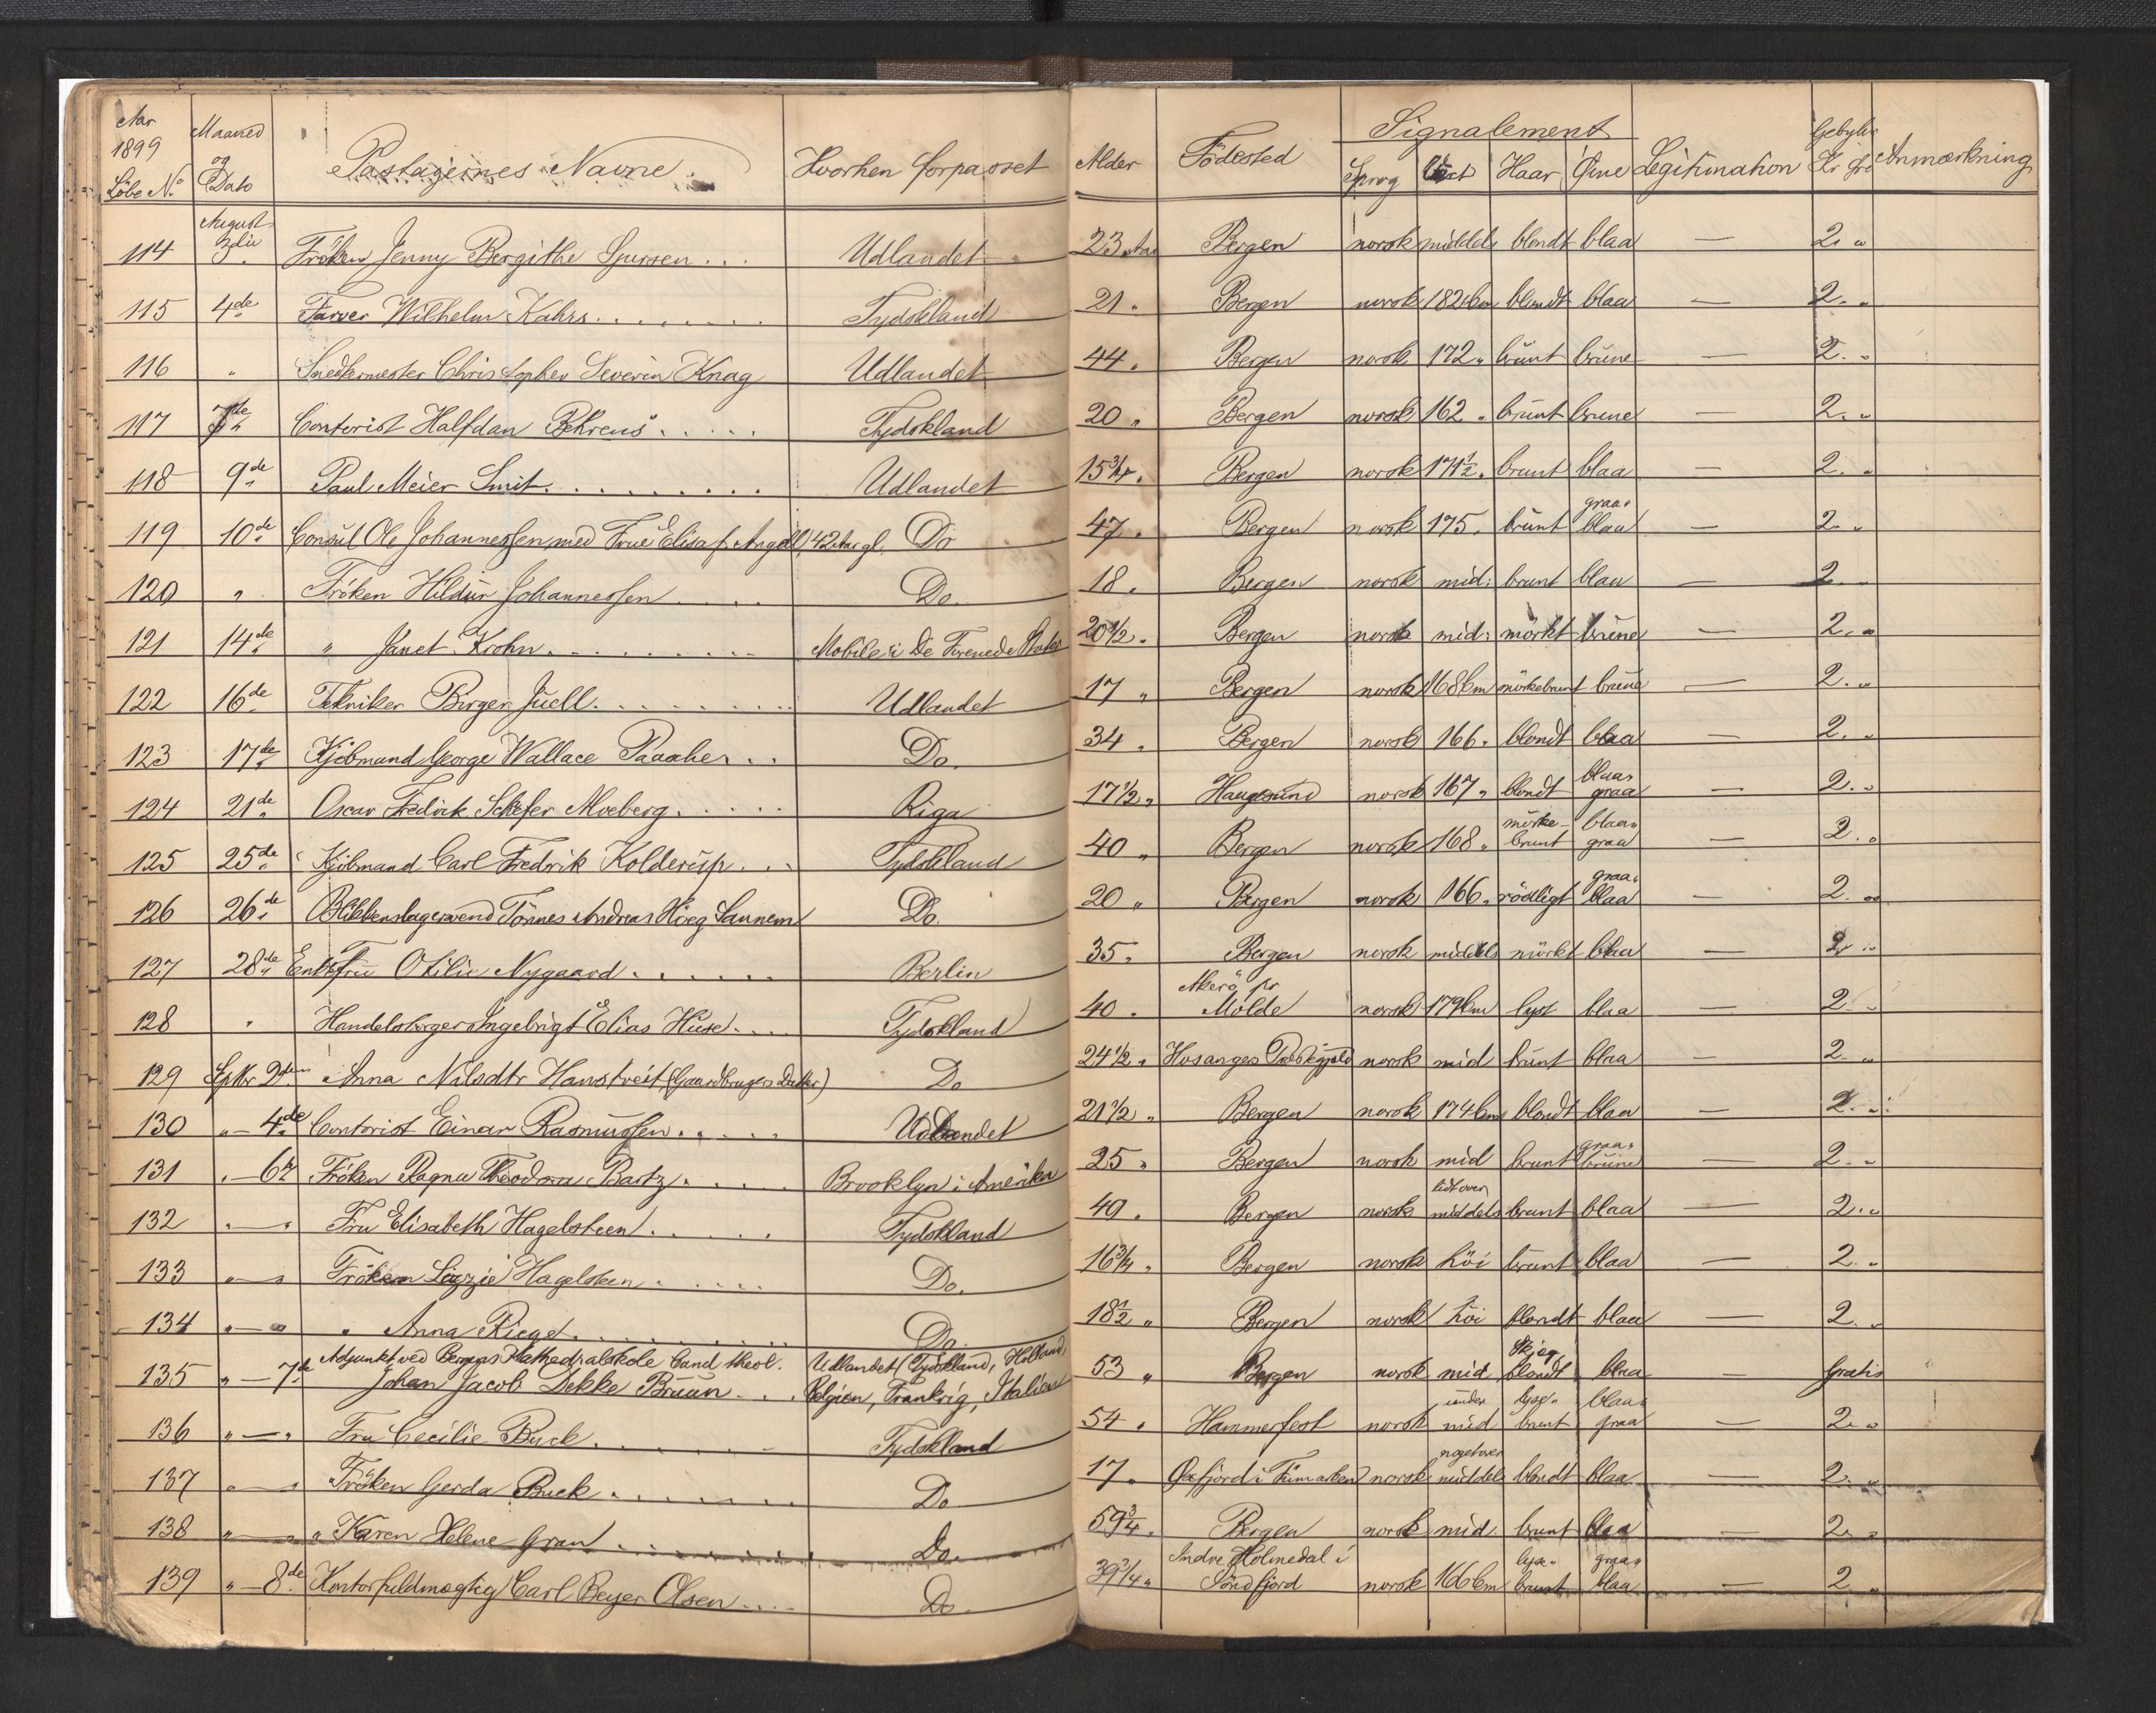 Aar 1899 Löbe No. Maaned og Dato Passagernes Navne. Hvorhen forpasset Alder Födested Signalement Sprog Vext Haar Öine Legitimation Gebyhr Kr Anmærkning
114 August 3die Fröken Jenny Bergithe Sjursen . . . Udlandet 23 Aar Bergen norsk middels blondt blaa — 2. "
115 4de Farver Wilhelm Kahrs . . . . . . . . Tydskland 21 " Bergen norsk 182 cm blondt blaa — 2. "
116 " Snedkermester Christopher Severin Knag Udlandet 44 " Bergen norsk 172 " brünt brüne — 2. "
117 7de Contorist Halfdan Behrens . . . . . Tydskland 20 " Bergen norsk 162 " brünt brune — 2. "
118 9de Paul Meier Smit . . . . . . . . . Udlandet 15 3/4 " Bergen norsk 171 1/2 " brunt blaa — 2. "
119 10de Consul Ole Johannessen med Frue Elisa f. Angell, 42 Aar gl. Do 47 " Bergen norsk 175 " brünt graa-blaa — 2. "
120 " Fröken Hildur Johannessen . . . . Do. 18 " Bergen norsk mid: brunt blaa — 2
121 14de " Janet Krohn . . . . . . . . . Mobile i De Forenede Stater 20 1/2 " Bergen norsk mid: mörkt brüne — 2. "
122 16de Tekniker Birger Juell . . . . . . . . Udlandet 17 " Bergen norsk 168 cm mörkebrunt brüne — 2. "
123 17de Kjöbmand George Wallace . . Do. 34 " Bergen norsk 166 " blondt blaa — 2. "
124 21de Oscar Fredrik Schefer Moeberg . . . . . Riga 17 1/2 " Haugesund norsk 167 " blondt blaa-graa — 2. "
125 25de Kjöbmand Carl Fredrik Kolderup . . . Tydskland 40 " Bergen norsk 168 " mörke-brunt blaa-graa — 2. "
126 26de Blikkenslagersvend Tönnes Andreas Höeg Sannem Do. 20 " Bergen norsk 166 " rödligt graa-blaa — 2. "
127 28de Enkefru Otilie Nygaard . . . . . . Berlin 35 " Bergen norsk middels mörkt blaa — 2 "
128 " Handelsborger Ingebrigt Elias Huse . . . Tydskland 40 " Akerö pr Molde norsk 179 cm lyst blaa — 2 "
129 Septbr 2den Anna Nilsdtr Hanstveit (Gaardbrugers Datter) Do 24 1/2 " Hosanger Præstegjeld norsk mid brünt blaa — 2. "
130 " — 4de Contorist Einar Rasmussen . . . . . Udlandet 21 1/2 " Bergen norsk 174 cm blondt blaa — 2. "
131 " — 6te Fröken Ragna Theodora Bartz . . . . . Brooklyn i Amerika 25 " Bergen norsk mid brunt graa-brüne — 2. "
132 " — " Fru Elisabeth Hagelsteen . . . . . Tydskland 40 " Bergen norsk lidt over middels brunt blaa — 2. "
133 " — " Fröken Lizzie Hagelsteen . . . . . Do. 16 3/4 " Bergen norsk höi brunt blaa — 2. "
134 " — " " Anna Riege . . . . . . . . Do. 18 1/2 " Bergen norsk höi blondt blaa — 2. "
135 " — 7de Adjunkt ved Bergens Kathedralskole Cand. theol. Johan Jacob Dekke Bruun . . . Udlandet (Tydskland, Holland, Belgien, Frankrig, Italien 53 " Bergen norsk mid blondt blaa — Gratis
136 " — " Fru Cecilie Buck . . . . . . . Tydskland 54 " Hammerfest norsk under mid lyse-brunt blaa-graa — 2. "
137 " — " Fröken Gerda Buck . . . . . . . Do 17 " Öxfjord i Finmarken norsk noget over middels blondt blaa — 2. "
138 " — " " Karen Helene Gran . . . . . . . Do. 59 3/4 " Bergen norsk mid. brunt blaa — 2. "
139 " — 8de Kontorfuldmægtig Carl Beyer Olsen . . . . Do. 39 3/4 " Indre Holmedal i Söndfjord norsk 166 cm lyse-brunt graa-blaa — 2 "